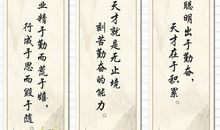 聪明出于勤奋，
天才在于积累。
天才就是无止境
刻苦勤奋的能力。
业精于勤而荒于嬉，
行成于思而毁于随